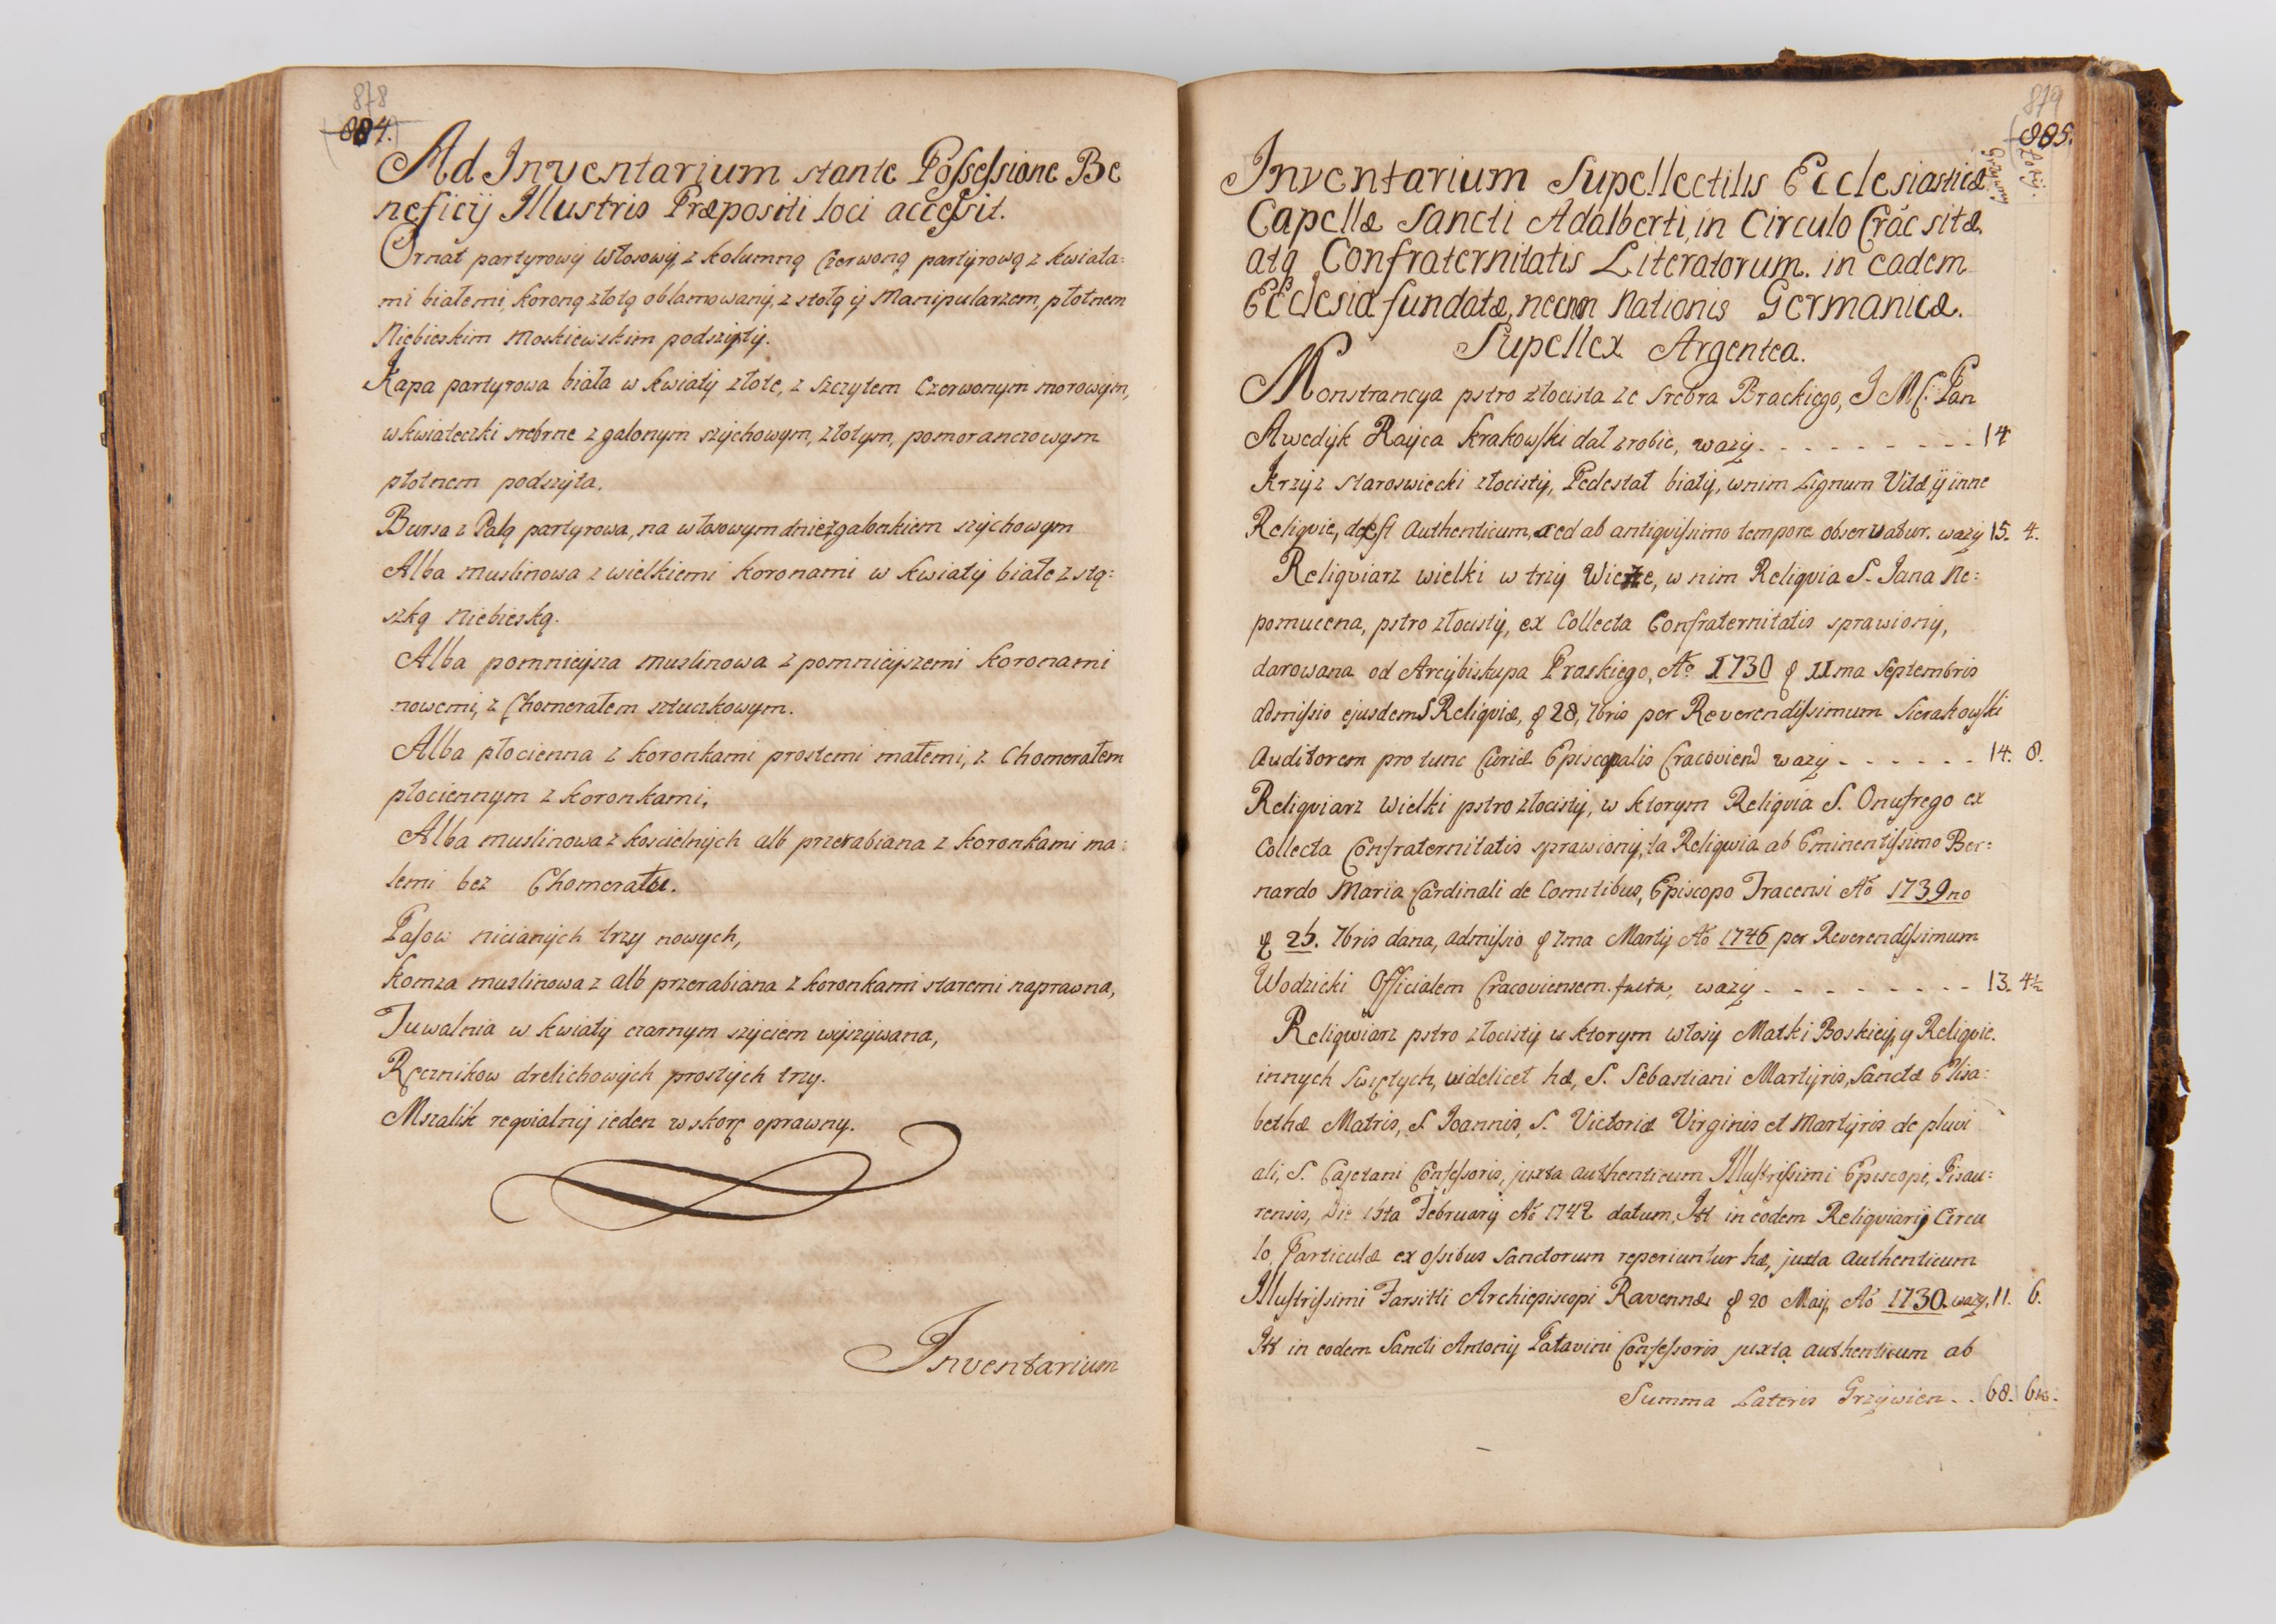 878
884.
Ad Inventarium stante Possessione Be
neficij Illustris Præpositi loci accessit.
Ornat partyrowy włosowy, z kolumną czerwoną partyrową z kwiata:
mi białemi, koroną złotą oblamowany, z stołą y Manipularzem, płotnem
Niebieskim Moskiewskim podszyty.
Kapa partyrowa biała w kwiaty złote, z szczytem czerwonym morowym,
w kwiateczki srebrne z galonym szychowym, złotym, pomoranczowym
płotnem podszyta.
Bursa z Palą partyrowa, na włosowym dnie z galonkiem szychowym
Alba muslinowa z wielkiemi koronami w kwiaty białe z stą:
szką niebieską.
Alba pomnieysza muslinowa z pomnieyszemi koronami
nowemi, z Chomerałem sztuczkowym.
Alba płocienna z koronkami prostemi małemi, z Chomerałem
płociennym z koronkami,
Alba muslinowa z koscielnych alb przerabiana z koronkami ma:
łemi bez Chomerału.
Pasow nicianych trzy nowych,
Komza muslinowa z alb przerabiana z koronkami staremi naprawna,
Tuwalnia w kwiaty czarnym szyciem wyszywana,
Ręcznikow drelichowych prostych trzy.
Mszalik requialny ieden w skorę oprawny.
Inventarium
879
885.
Grzywny Łoty.
Inventarium Supellectilis Ecclesiasticæ
Capellæ Sancti Adalberti, in Circulo Crac sitæ.
atq Confraternitatis Literatorum. in eadem
Ecclesia fundatæ, necnon Nationis Germanicæ.
Supellex Argentea.
Monstrancya pstro złocista ze srebra Brackiego, J M C Pan
Awedyk Rayca Krakowski dał zrobic, wazy - - - - - - - - - 14
Krzyz staroswiecki złocisty, Pedestał biały, w nim Lignum Vitæ y inne
Reliqvie, deest Authenticum, sed ab antiqvissimo tempore observatur. wazy 15. 4.
Reliqviarz wielki w trzy Wieże, w nim Reliqvia S. Jana Ne:
pomucena, pstro złocisty, ex Collecta Confraternitatis sprawiony,
darowana od Arcybiskupa Praskiego, Aō 1730 δ 11ma Septembris
admissio ejusdem Reliqviæ, δ 28, 7bris per Reverendissimum Sierakowski
Auditorem pro tunc Curiæ Episcopalis Cracovien wazy - - - - - - 14. 8.
Reliqviarz wielki pstro złocisty, w ktorym Reliqvia S. Onufrego ex
Collecta Confraternitatis sprawiony, ta Reliqwia ab Eminentissimo Ber:
nardo Maria Cardinali de Comitibus, Episcopo Tracensi Aō 1739no
δ 25. 7bris dana, admissio δ 7ma Martij Aō 1746 per Reverendissimum
Wodzicki Officialem Cracoviensem. facta, wazy - - - - - - - - - 13. 4½
Reliqwiarz pstro złocisty w ktorym włosy Matki Boskiey, y Reliqvie.
innych Swiętych, videlicet hæ, S. Sebastiani Martyris, Sanctæ Elisa:
bethæ Matris, S. Joannis, S. Victoriæ Virginis et Martyris de pluvi
ali, S. Cajetani Confessoris, juxta authenticum Illustrissimi Episcopi, Pisau:
rensis, Die 15ta February Aō 1742 datum, Itt in eodem Reliqviarij Circu
lo, Particulæ ex ossibus Sanctorum reperiuntur hæ, juxta Authenticum
Illustrissimi Farsitti Archiepiscopi Ravennæ δ 20 Maij, Aō 1730. wazy, 11. 6.
Itt in eodem Sancti Antonij Patavini Confessoris juxta authenticum ab
Summa Lateris Grzywien - - 68. 6½.